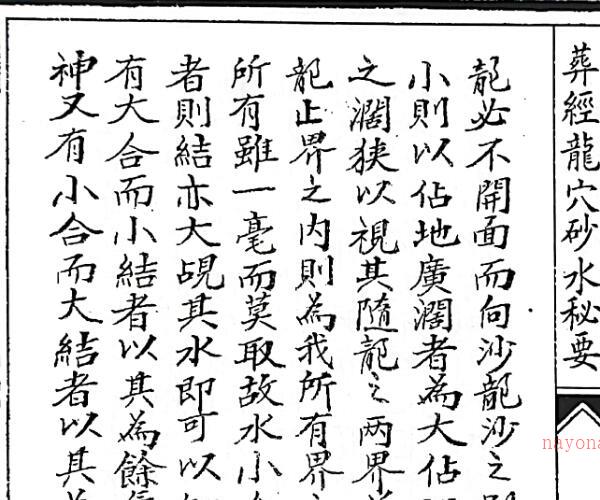 葬經龍穴砂水秘要
龍必不開面而向沙龍沙之
小則以佔地廣濶者為大佔
之濶狹以視其隨龍之兩界
龍止界之内則為我所有界
所有雖一毫而莫取故水小
者則結亦大覘其水即可以
有大合而小結者以其為餘
神又有小合而大結者以其
nayona